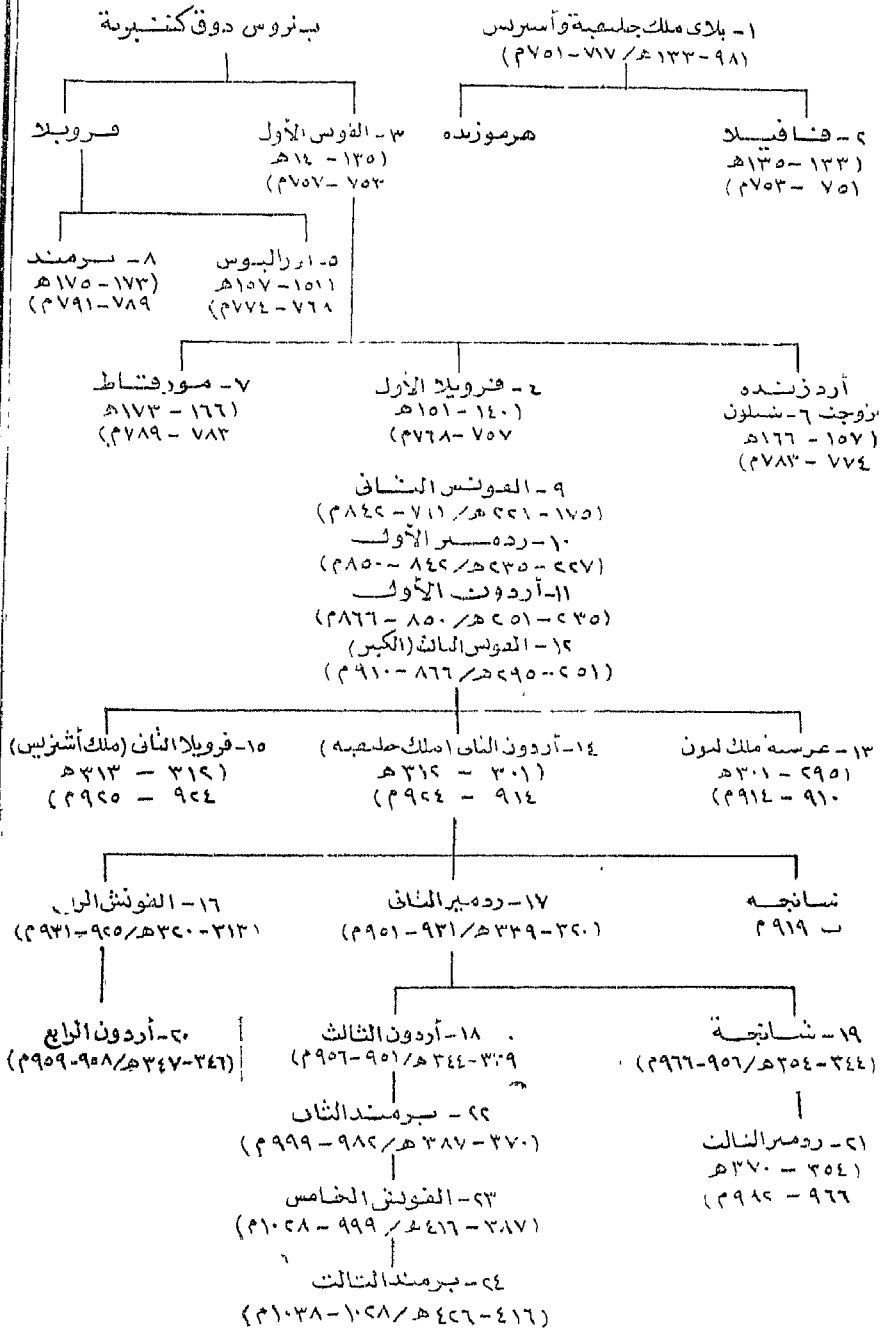 ١- بلاى ملك جليقية وأسترس
(٩٨-١٣٣هـ/٧١٧-٧٥١م)
بتروس دوق كنتبرية
٢- فافيلا
(١٣٣-١٣٥هـ
٧٥١-٧٥٣م)
هرموزنده
٣- الفونس الأول
(١٣٥-١٤هـ
٧٥٣-٧٥٧م)
فرويلا
٥- اورالبوس
(١٥١-١٥٧هـ
٧٦٨-٧٧٤م)
٨- برمند
(١٧٣-١٧٥هـ
٧٨٩-٧٩١م)
أردزنده
زوجت ٦- شلون
(١٥٧-١٦٦هـ
٧٧٤-٧٨٣م)
٤- فرويلا الأول
(١٤٠-١٥١هـ
٧٥٧-٧٦٨م)
٧- مورقاط
(١٦٦-١٧٣هـ
٧٨٣-٧٨٩م)
٩- الفونس الثانى
(١٧٥-٢٢١هـ/٧٩١-٨٤٢م)
١٠- ردمير الأول
(٢٢٧-٢٣٥هـ/٨٤٢-٨٥٠م)
١١- أردون الأول
(٢٣٥-٢٥١هـ/٨٥٠-٨٦٦م)
١٢- الفونس الثالث (الكبير)
(٢٥١-٢٩٥هـ/٨٦٦-٩١٠م)
١٣- غرسيه ملك ليون
(٢٩٥-٣٠١هـ
٩١٠-٩١٤م)
١٤- أردون الثانى (ملك جليقية)
(٣٠١-٣١٢هـ
٩١٤-٩٢٤م)
١٥- فرويلا الثانى (ملك أشتريس)
(٣١٢-٣١٣هـ
٩٢٤-٩٢٥م)
سانجه
ت ٩١٩م
١٧- ردمير الثانى
(٣٢٠-٣٣٩هـ/٩٣١-٩٥١م)
١٦- الفونش الرابع
(٣١٣-٣٢٠هـ/٩٢٥-٩٣١م)
١٩- شانجة
(٣٤٤-٣٥٤هـ/٩٥٦-٩٦٦م)
١٨- أردون الثالث
٣٣٩-٣٤٤هـ/٩٥١-٩٥٦م)
٢٠- أردون الرابع
(٣٤٦-٣٤٧هـ/٩٥٨-٩٥٩م)
٢١- ردمير الثالث
(٣٥٤-٣٧٠هـ
٩٦٦-٩٨٢م)
٢٢- برمند الثانى
(٣٧٠-٣٨٧هـ/٩٨٢-٩٩٩م)
٢٣- الفونش الخامس
(٣٨٧-٤١٦هـ/٩٩٩-١٠٢٨م)
٢٤- برمند الثالث
(٤١٦-٤٢٦هـ/١٠٢٨-١٠٣٨م)